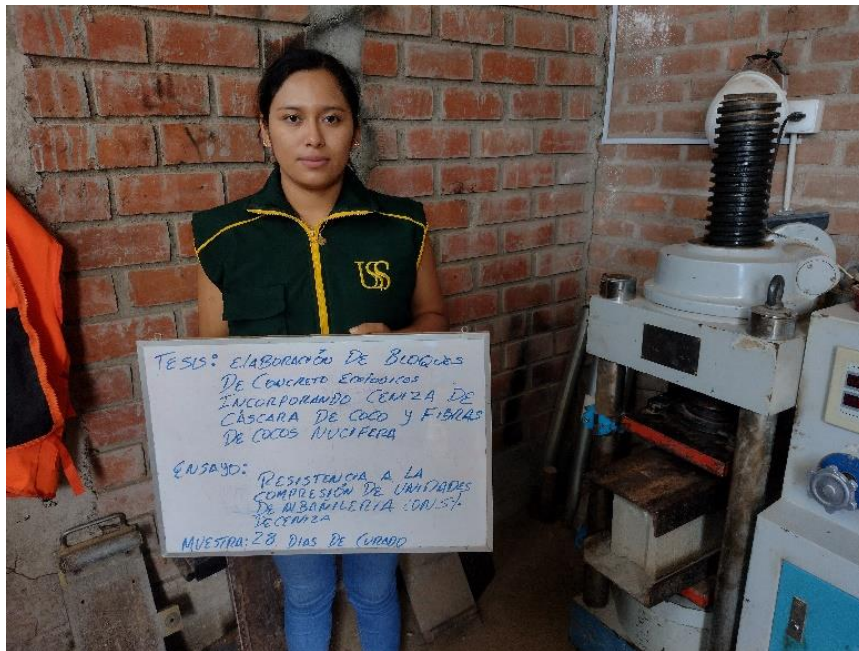 USS
TESIS: ELABORACIÓN DE BLOQUES
DE CONCRETO ECOLOGICOS
INCORPORANDO CENIZA DE
CÁSCARA DE COCO Y FIBRAS
DE COCOS NUCIFERA
ENSAYO:
RESISTENCIA A LA
COMPRESIÓN DE UNIDADES
DE ALBAÑILERIA CON 5%
DE CENIZA
MUESTRA: 28 DIAS DE CURADO